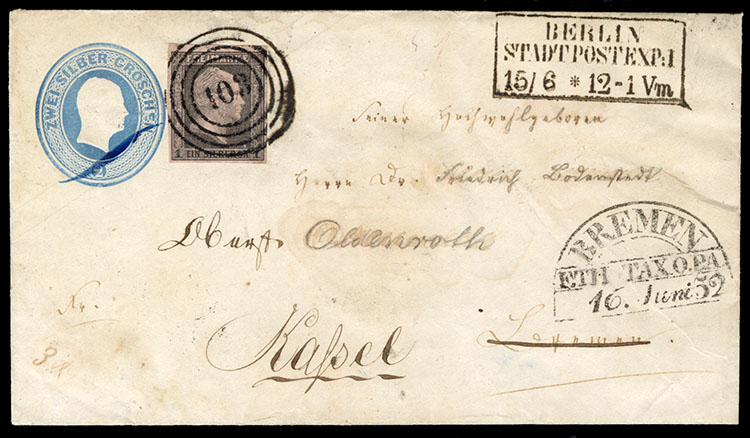 ZWEI SILBER GROSCHEN
2
FREIMARKE
103
1 EIN SILBERGR. 1
BERLIN
STADTPOSTEXP:I
15/6 * 12-1 Vm
Seiner Hochwohlgeboren
Herrn Dr. Friedrich Bodenstedt
Oberst Oldenroth
BREMEN
ETH TAX O.PA
16. Juni 52
Fr.
Kaßel
Bremen